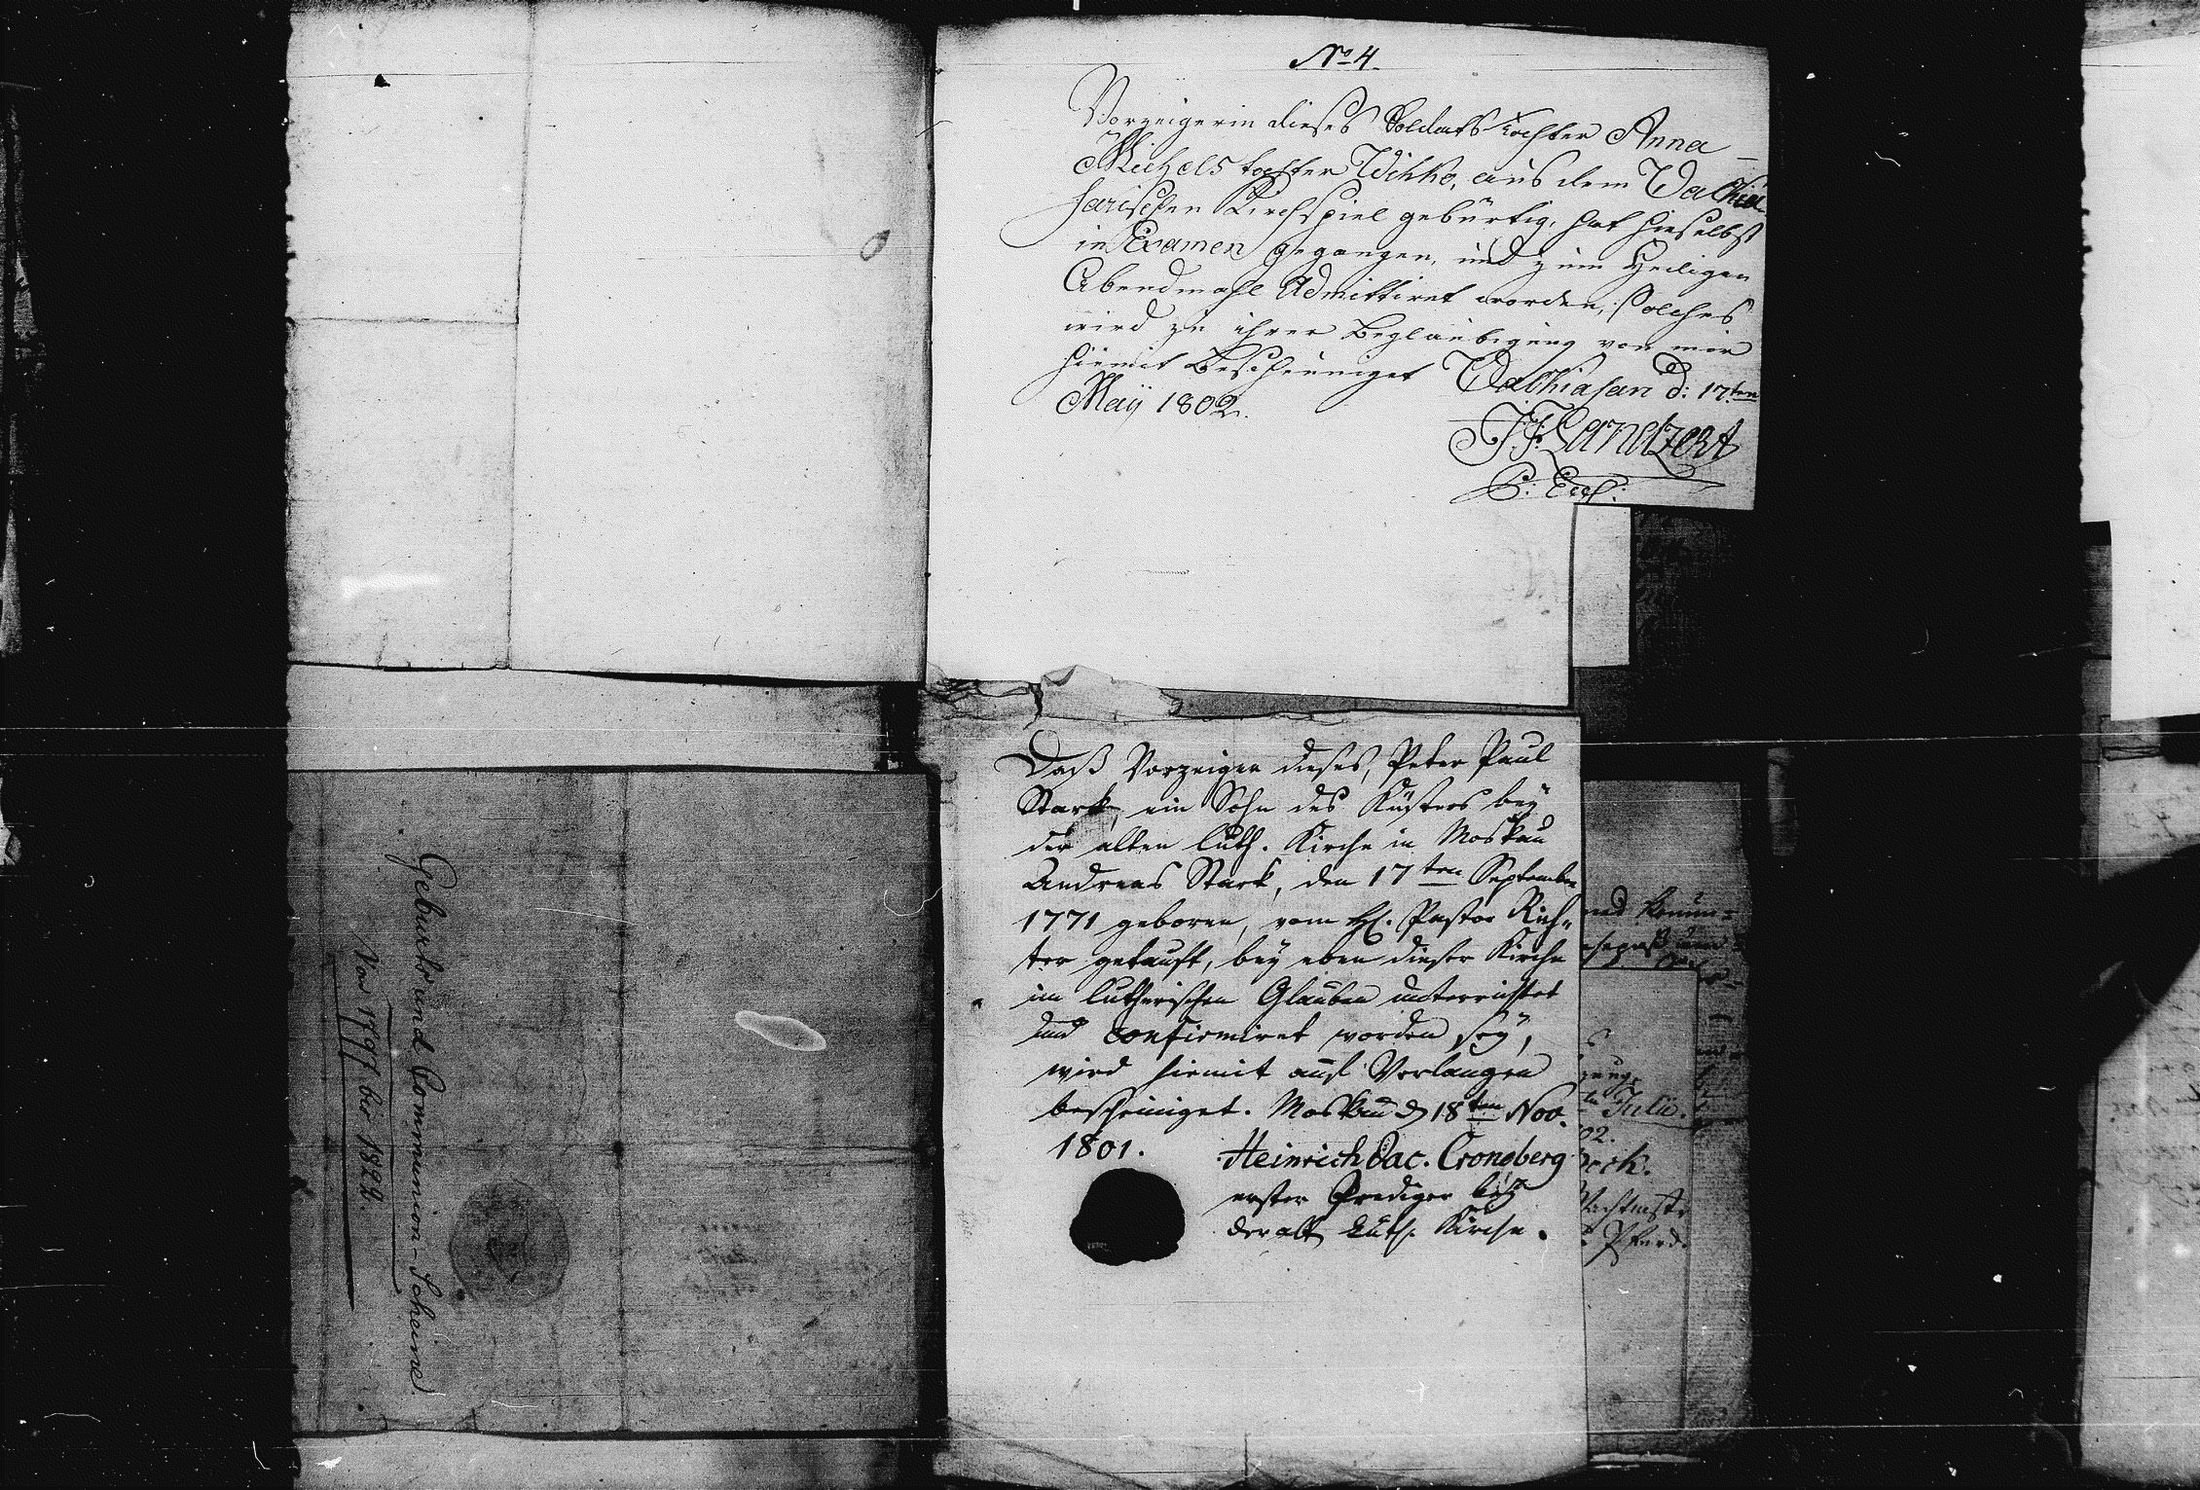 No 4.
Vorzeigerin dieses Soldats Tochter Anna
Michels tochter Wihko, aus dem Walkia-
sarischen Kirchspiel gebürtig, hat hieselbst
in Examen gegangen, und zum Heiligen
Abendmahl Admittiret worden, solches
wird zu ihrer Beglaubigung von mir
hiemit bescheiniget Walkiasari d: 17ten
Maÿ 1802.
Landzert
P: Eccl:
Daß Vorzeiger dieses, Peter Paul
Stark, ein Sohn des Küsters bey
der alten luth. Kirche in Moskau
Andreas Stark, den 17ten September
1771 geboren, vom H. Pastor Rich-
ter getauft, bey eben dieser Kirche
im lutherischen Glauben unterrichtet
und confirmiret worden sey,
wird hiemit auf Verlangen
bescheiniget. Moskau d 18ten Nov.
1801.
Heinrich Jac. Cronoberg
erster Prediger bey
der alt Luth. Kirche.
Geburts und Communion-Scheine
Von 1797 bis 1822.
Julii.
02.